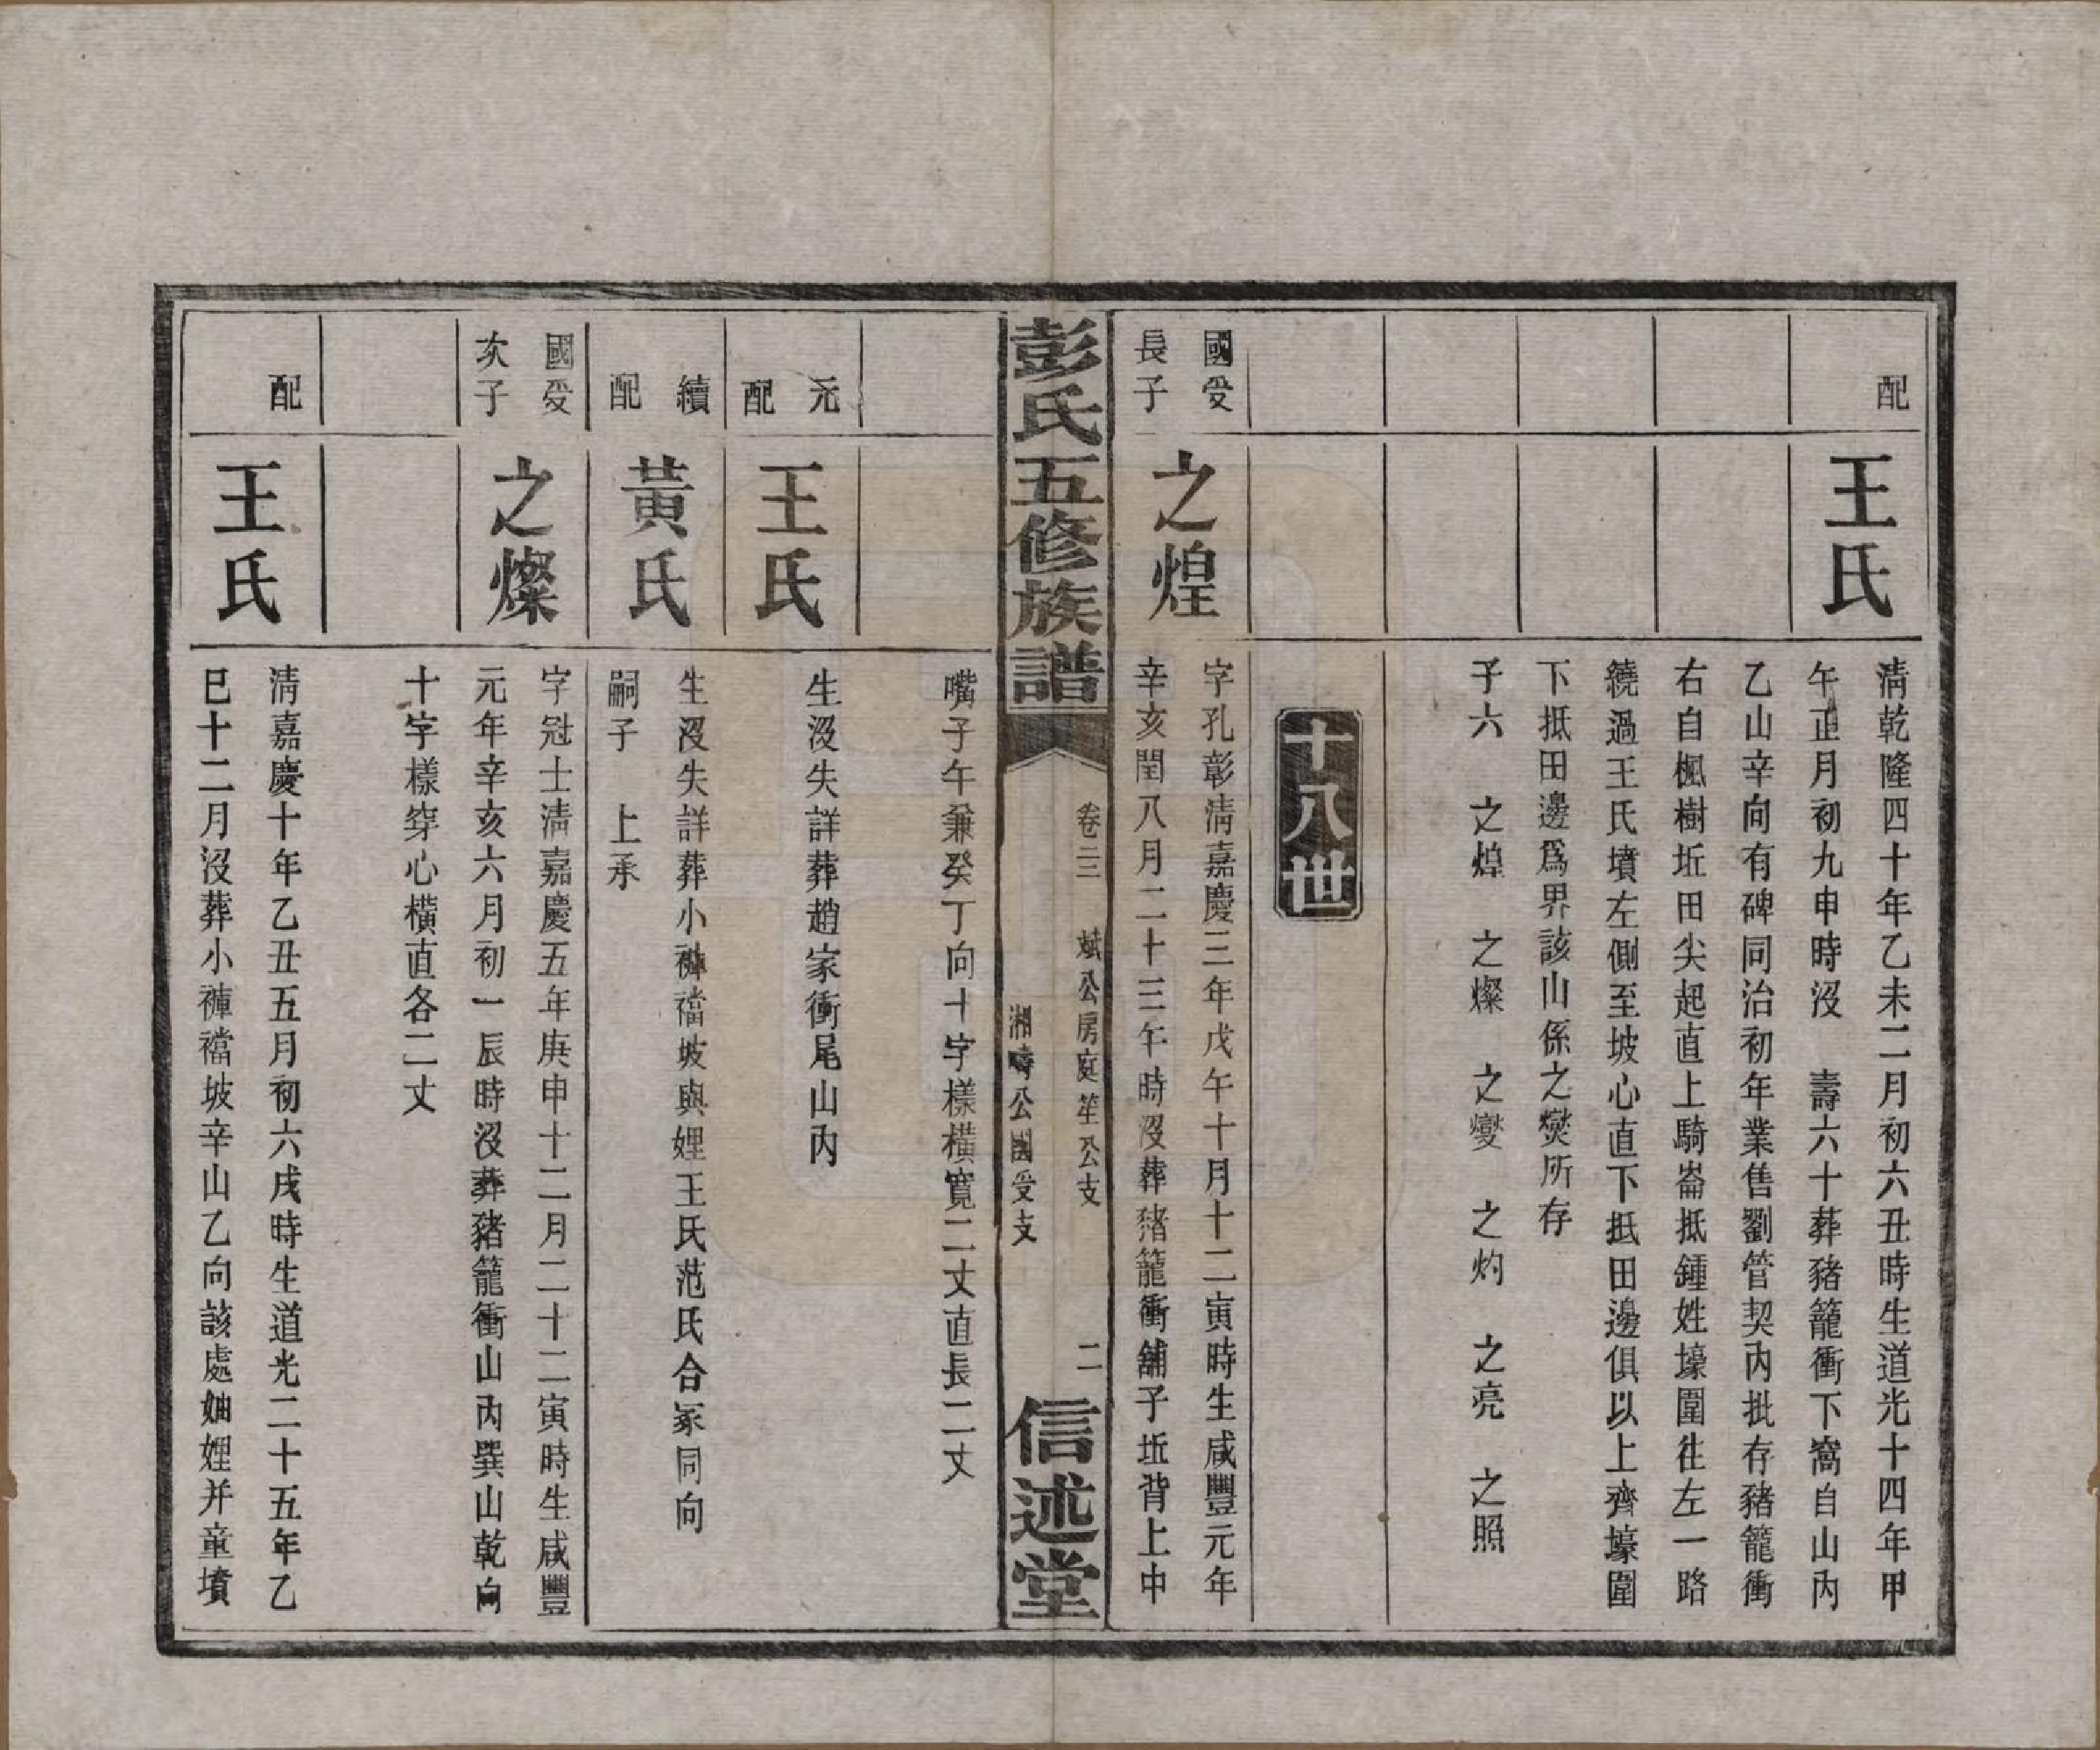 配
王氏
清乾隆四十年乙未二月初六丑時生道光十四年甲
午正月初九申時沒　壽六十葬豬籠衝下窩自山內
乙山辛向有碑同治初年業售劉管契內批存豬籠衝
右自楓樹坵田尖起直上騎崙抵鍾姓壕圍往左一路
繞過王氏墳左側至坡心直下抵田邊俱以上齊壕圍
下抵田邊爲界該山係之爕所存
子六　之煌　之燦　之爕　之灼　之亮　之照
十八世
國受
長子
之煌
字孔彰清嘉慶三年戊午十月十二寅時生咸豐元年
辛亥閏八月二十三午時沒葬豬籠衝舖子坵背上中
彭氏五修族譜
卷二三　斌公房庭笙公支
湘疇公國受支
二
信述堂
嘴子午兼癸丁向十字樣橫寬二丈直長二丈
元
配
王氏
生沒失詳葬趙家衝尾山內
續
配
黃氏
生沒失詳葬小褲襠坡與娌王氏范氏合冢同向
嗣子　上承
國受
次子
之燦
字冠士清嘉慶五年庚申十二月二十二寅時生咸豐
元年辛亥六月初一辰時沒葬豬籠衝山內巽山乾向
十字樣穿心橫直各二丈
配
王氏
清嘉慶十年乙丑五月初六戌時生道光二十五年乙
巳十二月沒葬小褲襠坡辛山乙向該處妯娌并童墳